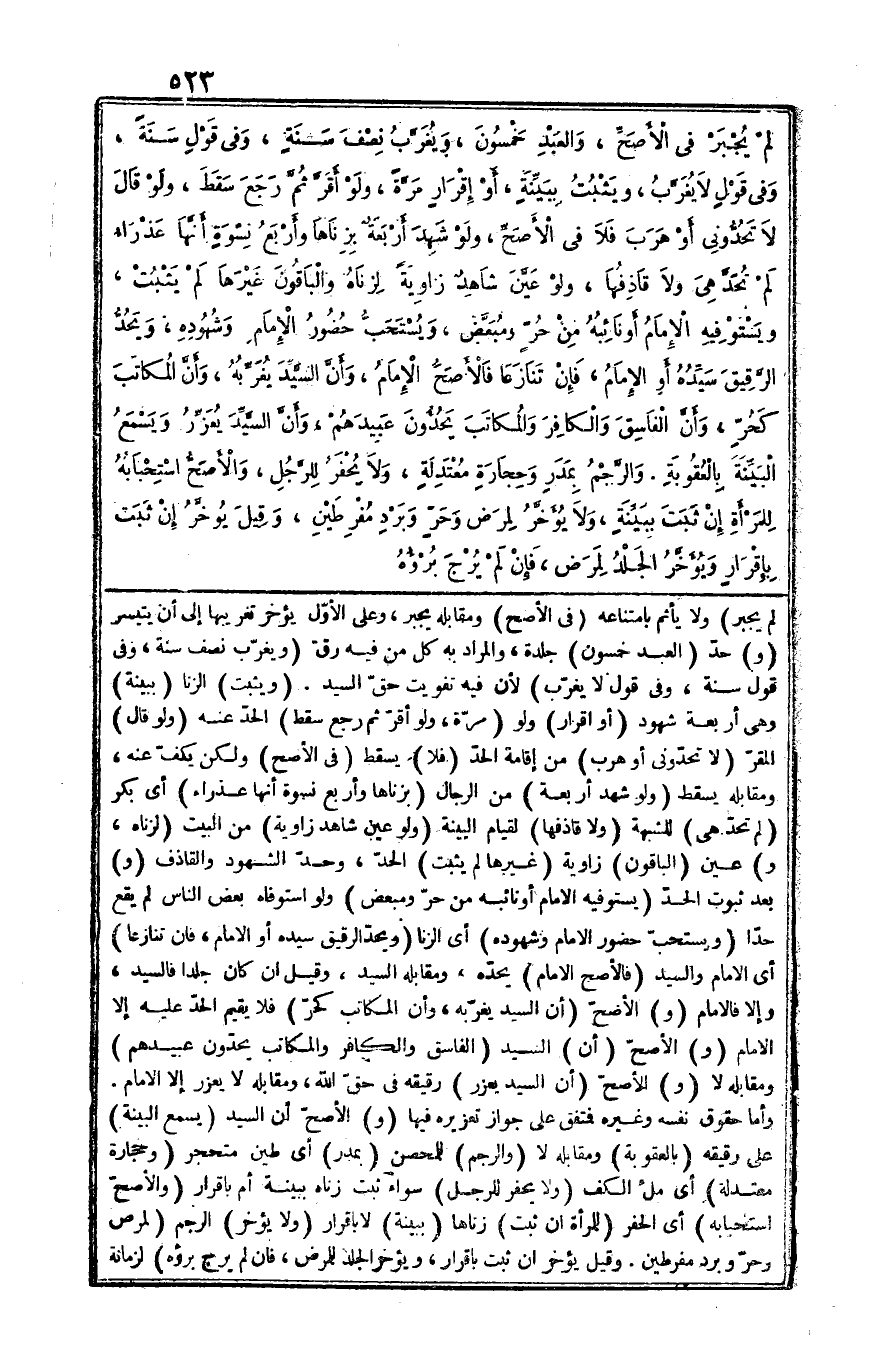 ٥٢٣
لَمْ يُجْبَرْ فِى الْأَصَحِّ ، وَالعَبْدِ خَمْسُونَ ، وَيُغَرَّبُ نِصْفَ سَنَةٍ ، وَفى قَوْلٍ سَنَةً ،
وَفى قَوْلٍ لاَ يُغَرَّبُ ، وَيَثْبُتُ بِبَيِّنَةٍ ، أَوْ إِقْرَارٍ مَرَّةً ، ولَوْ أَقَرَّ ثُمَّ رَجَعَ سَقَطَ ، ولَوْ قَالَ
لاَ تَحُدُّونِى أَوْ هَرَبَ فَلاَ فى الْأَصَحِّ ، ولَوْ شَهِدَ أَرْبَعَةٌ بِزِنَاهَا وأَرْبَعُ نِسْوَةٍ أَنَّهَا عَذْرَاء
لَمْ تُحَدَّ هِىَ ولاَ قَاذِفُها ، ولوْ عَيَّنَ شاهِدٌ زاوِيَةً لِزِنَاهُ والْبَاقُونَ غَيْرَهَا لَمْ يَثْبُتْ ،
ويَسْتَوْفِيهِ الْإِمَامُ أَوْ نَائِبُهُ مِنْ حُرٍّ ومُبَعَّضٍ ، وَيُسْتَحَبُّ حُضُورُ الْإِمَامِ وَشُهُودِهِ ، وَيَحُدُّ
الرَّقِيقَ سَيِّدُهُ أَوِ الإِمَامُ ، فَإِنْ تَنَازَعَا فَالْأَصَحُّ الْإِمَامُ ، وَأَنَّ السَّيِّدَ يُغَرِّبُهُ ، وَأَنَّ الْمُكاتَبَ
كَحُرٍّ ، وَأَنَّ الْفَاسِقَ وَالْكافِرَ وَالْمُكاتَبَ يَحُدُّونَ عَبِيدَهُمْ ، وَأَنَّ السَّيِّدَ يُعَزِّرُ وَيَسْمَعُ
الْبَيِّنَةَ بِالْعُقُوبَةِ . وَالرَّجْمُ بِمَدَرٍ وَحِجَارَةٍ مُعْتَدِلَةٍ ، وَلاَ يُحْفَرُ لِلرَّجُلِ ، وَالْأَصَحُّ اسْتِحْبَابُهُ
لِلمَرْأَةِ إِنْ ثَبَتَ بِبَيِّنَةٍ ، وَلاَ يُؤَخَّرُ لِمَرَضٍ وَحَرٍّ وَبَرْدٍ مُفْرِطَيْنِ ، وَقِيلَ يُوخَّرُ إِنْ ثَبَتَ
بِإِقْرَارٍ وَيُؤَخَّرُ الجَلْدُ لِمَرَضٍ ، فَإِنْ لَمْ يُرْجَ بُرْؤُهُ
لم يجبر) ولا يأثم بامتناعه (فى الأصح) ومقابله يجبر ، وعلى الأوّل يؤخر تغريبها إلى أن يتيسر
(و) حدّ (العبد خمسون) جلدة ، والمراد به كل من فيه رقّ (ويغرّب نصف سنة ، وفى
قول سنة ، وفى قول لا يغرّب) لأن فيه تفويت حقّ السيد . (ويثبت) الزنا (ببينة)
وهى أربعة شهود (أو اقرار) ولو (مرّة ، ولو أقرّ ثم رجع سقط) الحدّ عنه (ولو قال)
المقرّ (لا تحدّونى أو هرب) من إقامة الحدّ (فلا) يسقط (فى الأصح) ولكن يكفّ عنه ،
ومقابله يسقط (ولو شهد أربعة) من الرجال (بزناها وأربع نسوة أنها عذراء) أى بكر
(لم تحدّ هى) للشبهة (ولا قاذفها) لقيام البينة (ولو عين شاهد زاوية) من البيت (لزناه ،
و) عين (الباقون) زاوية (غيرها لم يثبت) الحدّ ، وحدّ الشهود والقاذف (و)
بعد ثبوت الحدّ (يستوفيه الامام أو نائبه من حرّ ومبعض) ولو استوفاه بعض الناس لم يقع
حدّا (ويستحبّ حضور الامام وشهوده) أى الزنا (ويحدّ الرقيق سيده أو الامام ، فان تنازعا)
أى الامام والسيد (فالأصح الامام) يحدّه ، ومقابله السيد ، وقيل ان كان جلدا فالسيد ،
وإلا فالامام (و) الأصحّ (أن السيد يغرّبه ، وأن المكاتب كحرّ) فلا يقيم الحدّ عليه إلا
الامام (و) الأصحّ (أن) السيد (الفاسق والكافر والمكاتب يحدّون عبيدهم)
ومقابله لا (و) الأصحّ (أن السيد يعزر) رقيقه فى حقّ الله ، ومقابله لا يعزر إلا الامام .
وأما حقوق نفسه وغيره فمتفق على جواز تعزيره فيها (و) الأصحّ أن السيد (يسمع البينة)
على رقيقه (بالعقوبة) ومقابله لا (والرجم) للمحصن (بمدر) أى طين متحجر (وحجارة
معتدلة) أى ملء الكف (ولا يحفر للرجل) سواء ثبت زناه ببينة أم باقرار (والأصحّ
استحبابه) أى الحفر (للمرأة ان ثبت) زناها (ببينة) لا باقرار (ولا يؤخر) الرجم (لمرض
وحرّ وبرد مفرطين . وقيل يؤخر ان ثبت باقرار ، ويؤخر الجلد للمرض ، فان لم يرج برؤه) لزمانة